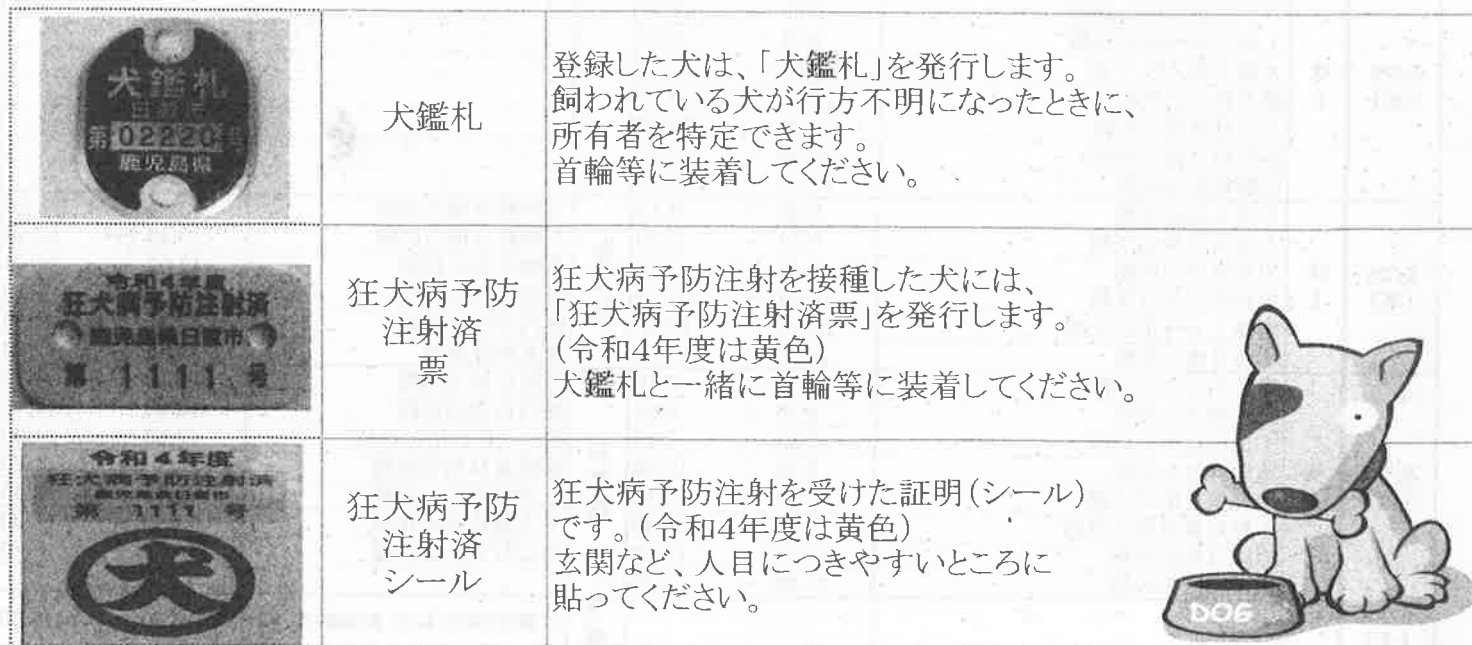 犬鑑札
第02220号
鹿児島県
犬鑑札
登録した犬は、「犬鑑札」を発行します。
飼われている犬が行方不明になったときに、
所有者を特定できます。
首輪等に装着してください。
令和4年度
狂犬病予防注射済
鹿児島県日置市
第 1111 号
狂犬病予防
注射済
票
狂犬病予防注射を接種した犬には、
「狂犬病予防注射済票」を発行します。
(令和4年度は黄色)
犬鑑札と一緒に首輪等に装着してください。
令和4年度
狂犬病予防注射済
鹿児島県日置市
第 1111 号
犬
狂犬病予防
注射済
シール
狂犬病予防注射を受けた証明(シール)
です。(令和4年度は黄色)
玄関など、人目につきやすいところに
貼ってください。
DOG